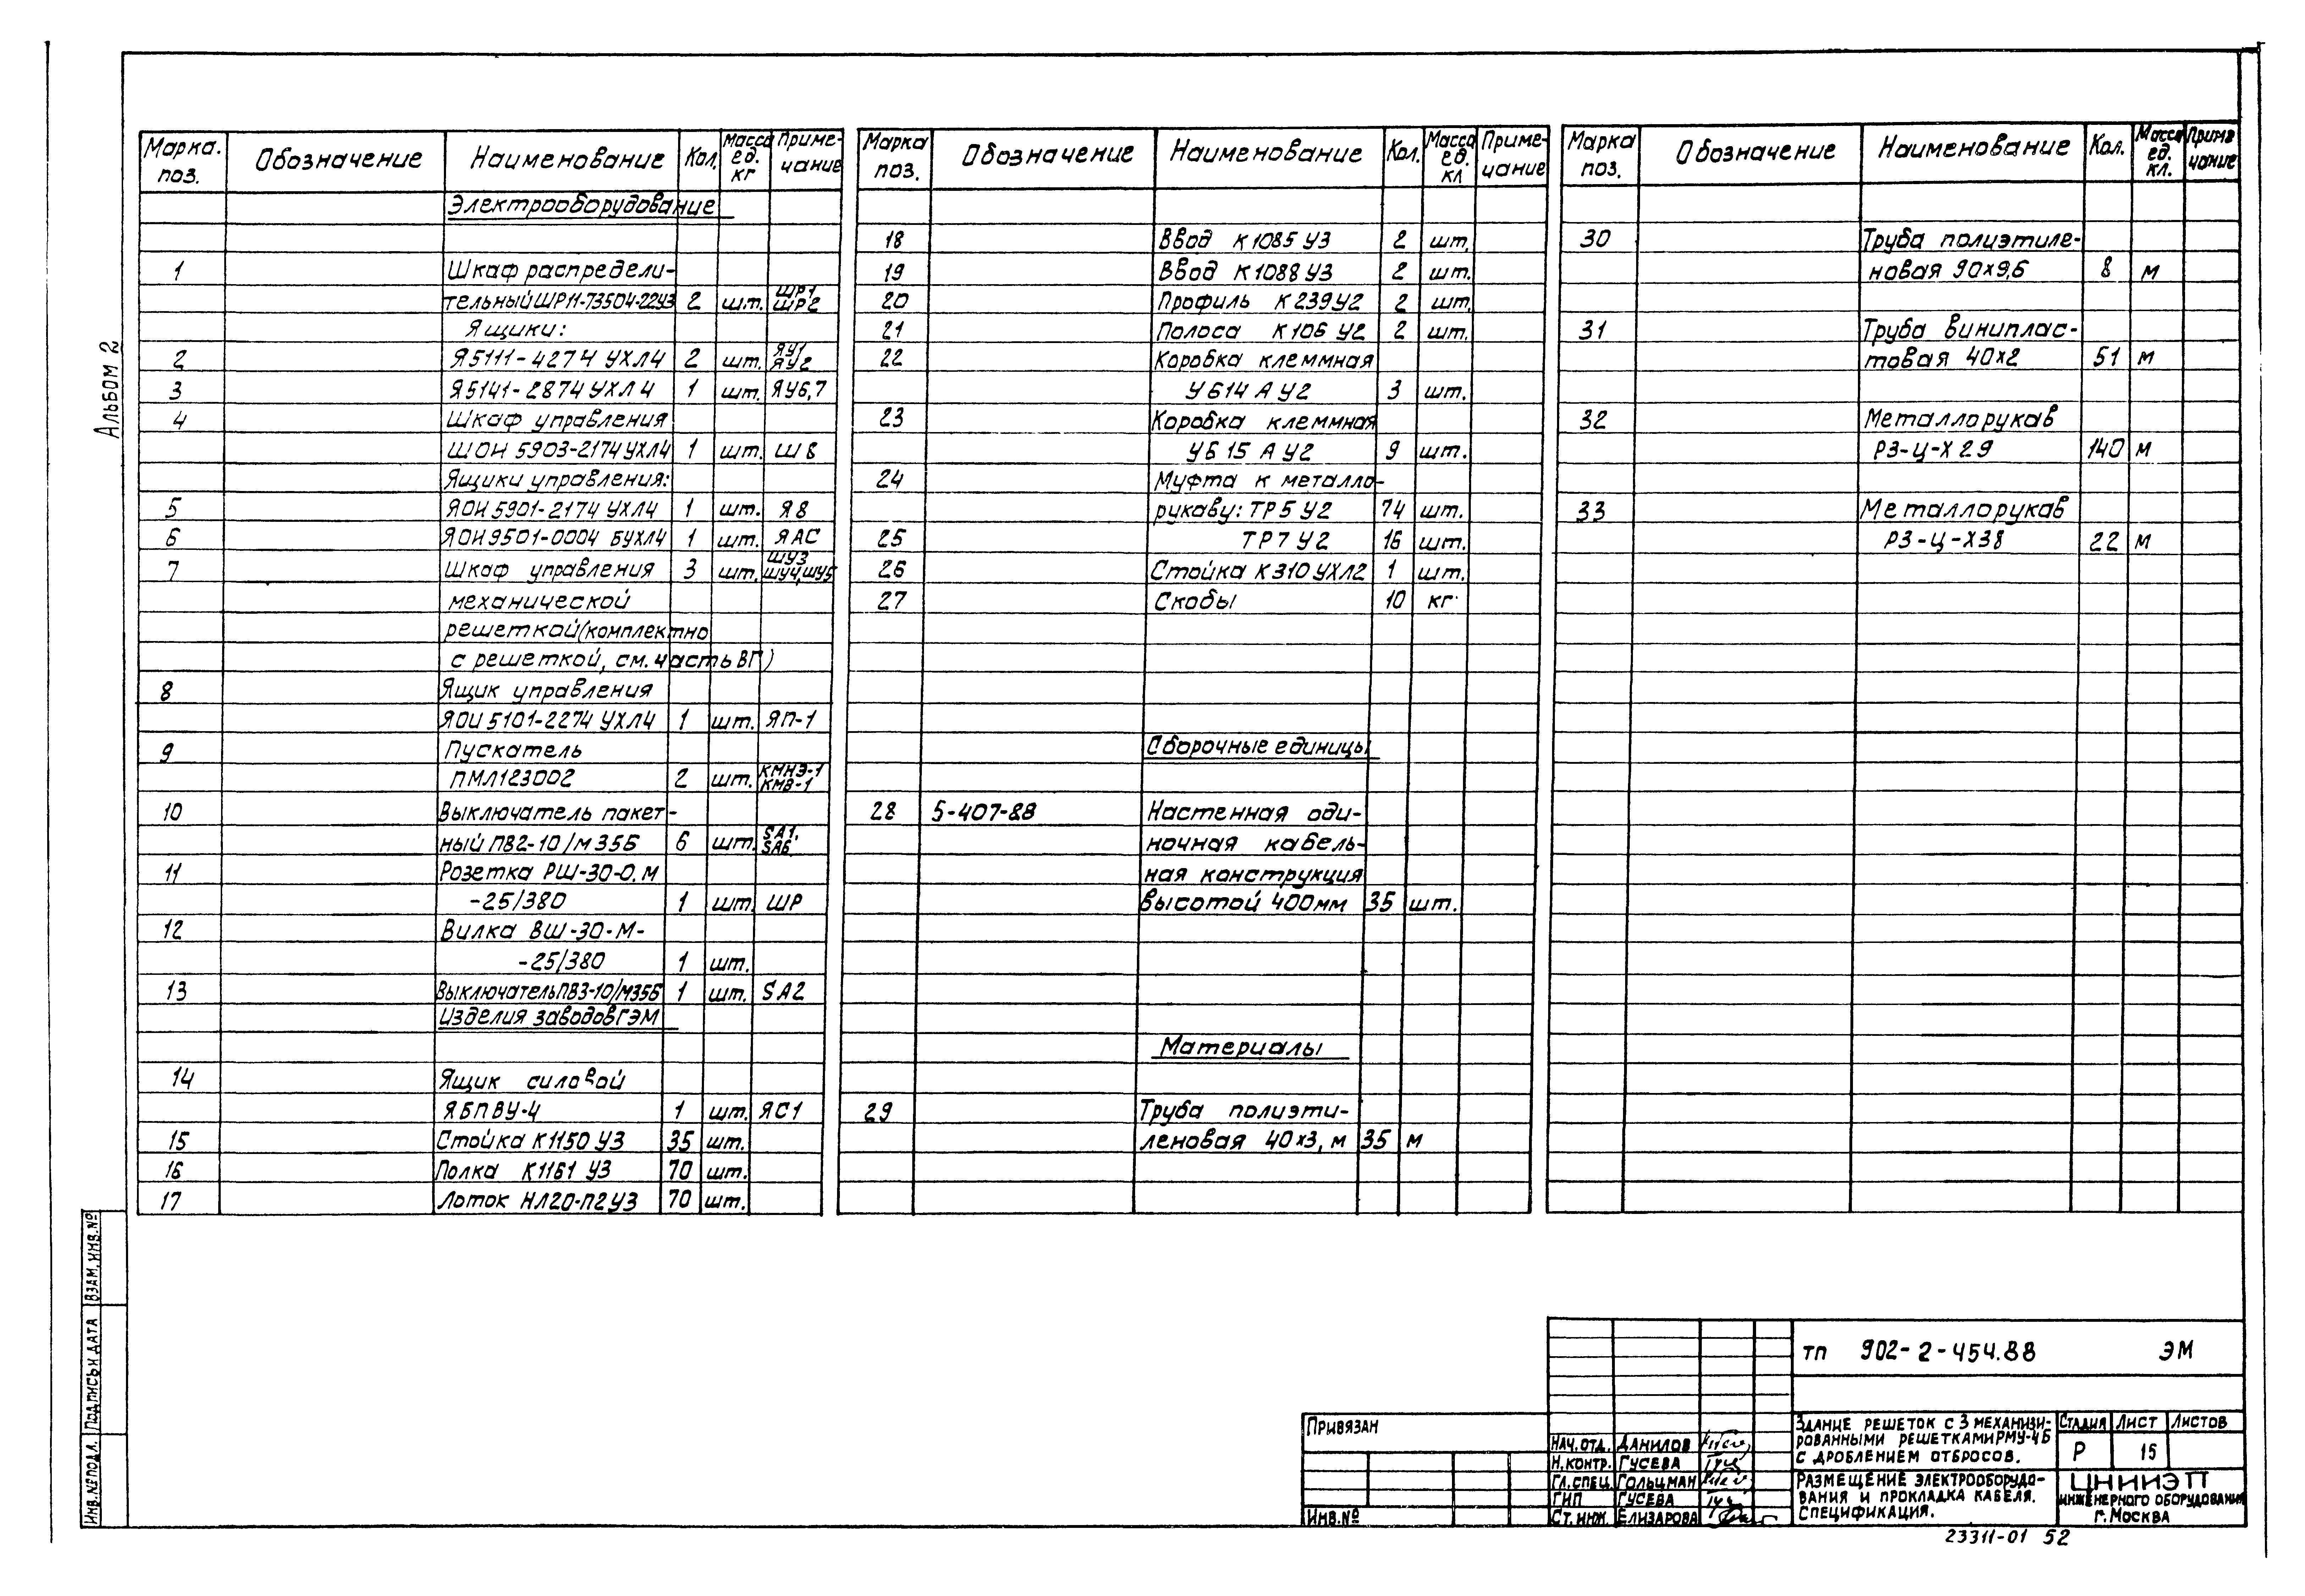 Альбом 2
Марка. поз. Обозначение Наименование Кол. Масса ед. кг Приме-чание
Электрооборудование
1 Шкаф распредели-
тельный ШР11-73504-22У3 2 шт. ШР1 ШР2
Ящики:
2 Я5111-4274 УХЛ4 2 шт. ЯУ1 ЯУ2
3 Я5141-2874 УХЛ4 1 шт. ЯУ6,7
4 Шкаф управления
ШОН 5903-2174 УХЛ4 1 шт. Ш8
Ящики управления:
5 ЯОИ 5901-2174 УХЛ4 1 шт. Я8
6 ЯОИ 9501-0004 БУХЛ4 1 шт. ЯАС
7 Шкаф управления 3 шт. ШУ3 ШУ4, ШУ5
механической
решеткой (комплектно
с решеткой, см. часть ВГ)
8 Ящик управления
ЯОИ 5101-2274 УХЛ4 1 шт. ЯП-1
9 Пускатель
ПМЛ123002 2 шт. КМНЭ-1 КМВ-1
10 Выключатель пакет-
ный ПВ2-10/М35Б 6 шт. SA1, SA6
11 Розетка РШ-30-0.М
-25/380 1 шт. ШР
12 Вилка ВШ-30-М-
-25/380 1 шт.
13 Выключатель ПВ3-10/М35Б 1 шт. SA2
Изделия заводов ГЭМ
14 Ящик силовой
ЯБПВУ-4 1 шт. ЯС1
15 Стойка К1150 У3 35 шт.
16 Полка К1161 У3 70 шт.
17 Лоток НЛ20-П2У3 70 шт.
Марка поз. Обозначение Наименование Кол. Масса ед. кл Приме-чание
18 Ввод К1085 У3 2 шт.
19 Ввод К1088 У3 2 шт.
20 Профиль К239У2 2 шт.
21 Полоса К106 У2 2 шт.
22 Коробка клеммная
У614 А У2 3 шт.
23 Коробка клеммная
У615 А У2 9 шт.
24 Муфта к металло-
рукаву: ТР5 У2 74 шт.
25 ТР7 У2 16 шт.
26 Стойка К310 УХЛ2 1 шт.
27 Скобы 10 кг
Сборочные единицы
28 5-407-88 Настенная оди-
ночная кабель-
ная конструкция
высотой 400мм 35 шт.
Материалы
29 Труба полиэти-
леновая 40х3, м 35 м
Марка поз. Обозначение Наименование Кол. Масса ед. кл. Приме чание
30 Труба полиэтиле-
новая 90х9,6 8 м
31 Труба винилплас-
товая 40х2 51 м
32 Металлорукав
РЗ-Ц-Х 29 140 м
33 Металлорукав
РЗ-Ц-Х38 22 м
Инв.№подл. Подпись и дата Взам.инв.№
Привязан
Инв.№
Нач.отд. Данилов
Н.контр. Гусева
Гл.спец. Гольцман
ГИП Гусева
Ст.инж. Елизарова
ТП 902-2-454.88 ЭМ
Здание решеток с 3 механизи-
рованными решетками РМУ-4Б
с дроблением отбросов.
Стадия Лист Листов
Р 15
Размещение электрооборудо-
вания и прокладка кабеля.
Спецификация.
ЦНИИЭП
инженерного оборудования
г. Москва
23311-01 52